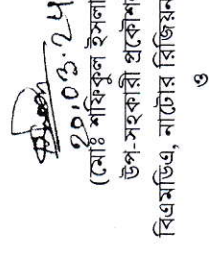 20.03.24
(মোঃ শফিকুল ইসলা
উপ-সহকারী প্রকৌশ
বিএমডিএ, নাটোর রিজিয়ন
ও